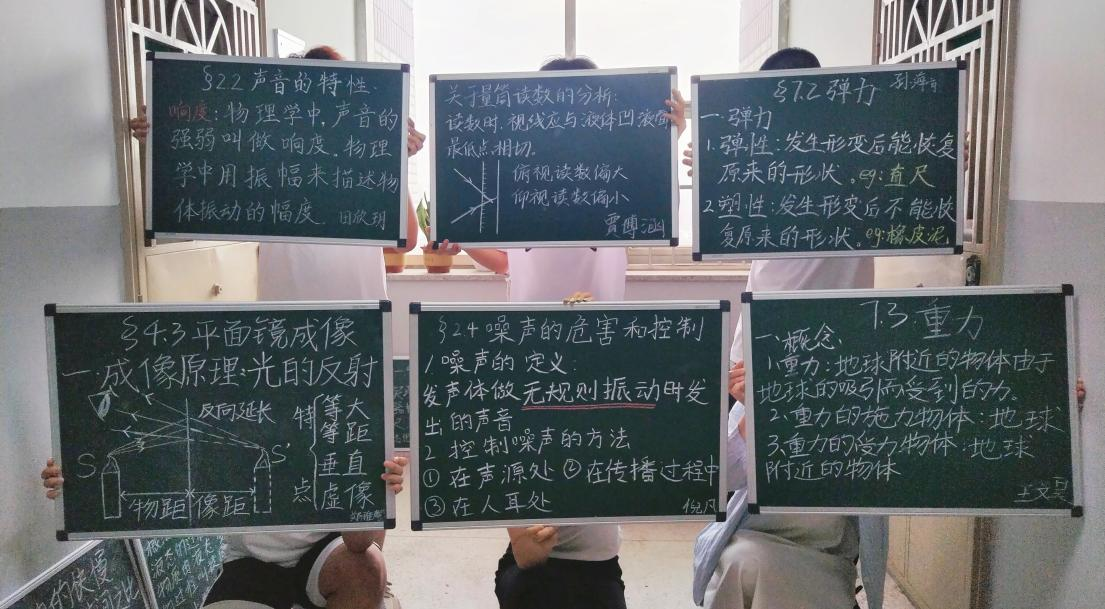 §2.2 声音的特性、
响度：物理学中，声音的
强弱叫做响度。物理
学中用振幅来描述物
体振动的幅度
田欣玥
关于量筒读数的分析：
读数时，视线应与液体凹液面
最低点相切。
俯视读数偏大
仰视读数偏小
贾博涵
§7.2 弹力
一·弹力
1.弹性：发生形变后能恢复
原来的形状。eg:直尺
2.塑性：发生形变后不能恢
复原来的形状。eg:橡皮泥
§4.3 平面镜成像
一·成像原理：光的反射
反向延长
S
S'
物距 像距
特点
等大
等距
垂直
虚像
§2.4 噪声的危害和控制
1 噪声的定义：
发声体做无规则振动时发
出的声音
2 控制噪声的方法
① 在声源处 ② 在传播过程中
③ 在人耳处
倪凡
7.3 重力
一、概念、
1.重力：地球附近的物体由于
地球的吸引而受到的力。
2.重力的施力物体：地球
3.重力的受力物体：地球
附近的物体